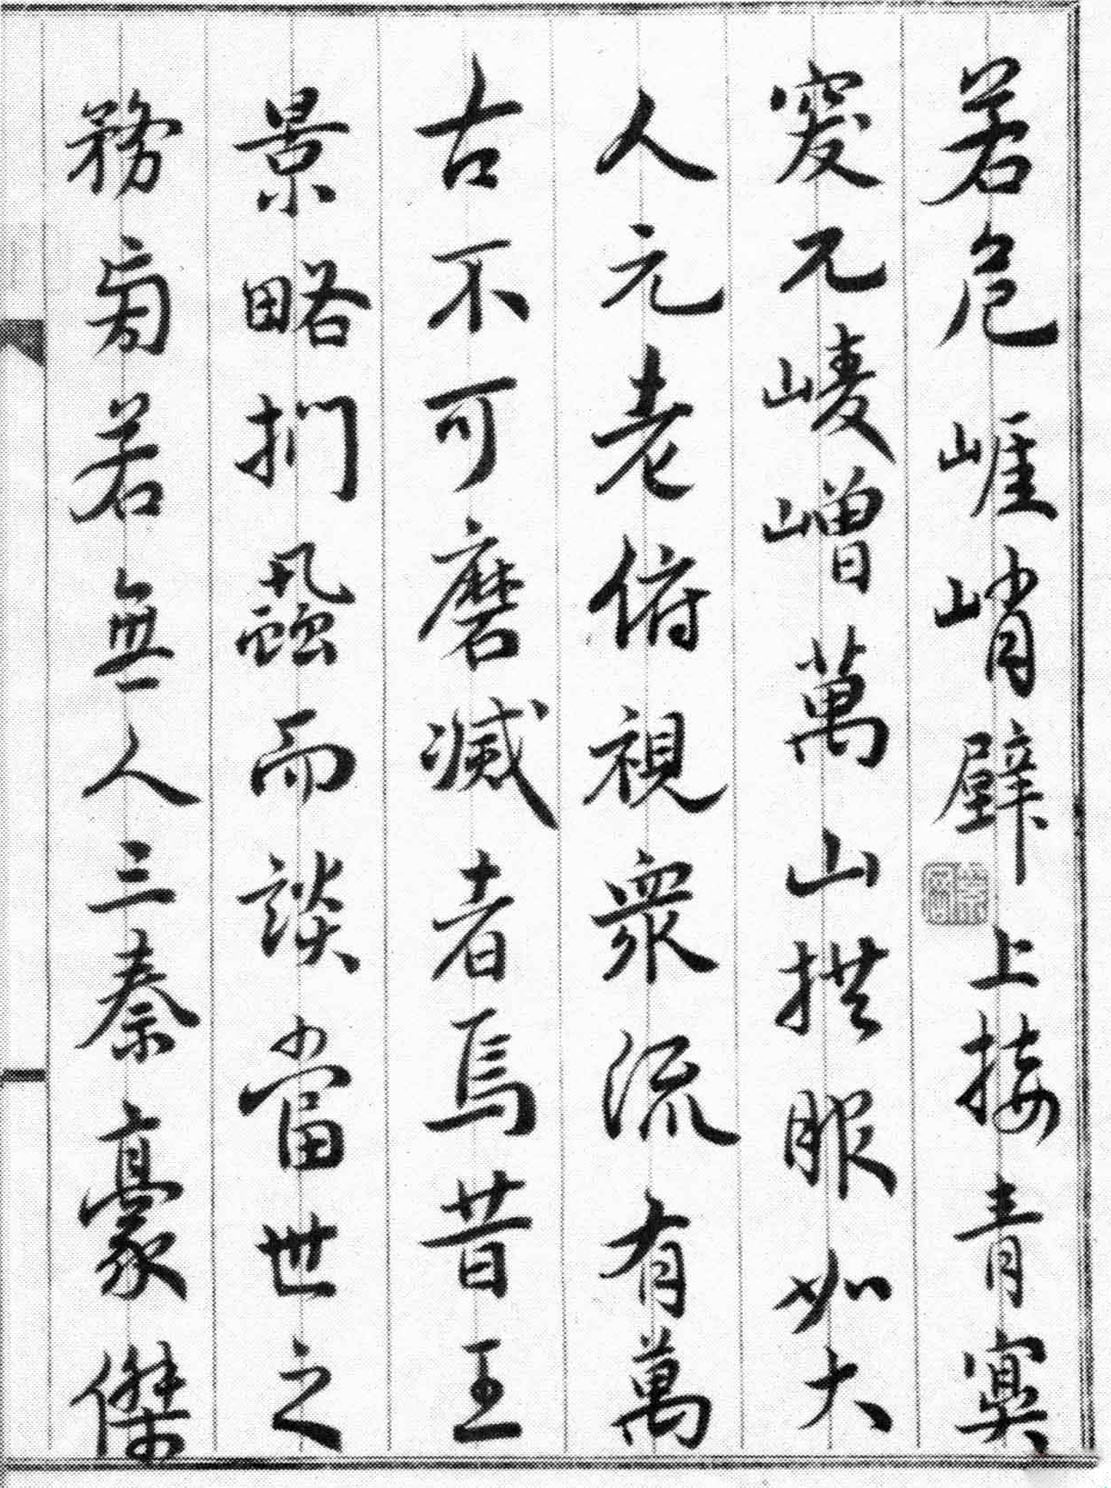 若危崕峭壁上接青冥
突兀崚嶒萬山拱服如大
人元老俯視衆流有萬
古不可磨滅者焉昔王
景略捫蝨而談當世之
務旁若無人三秦豪傑